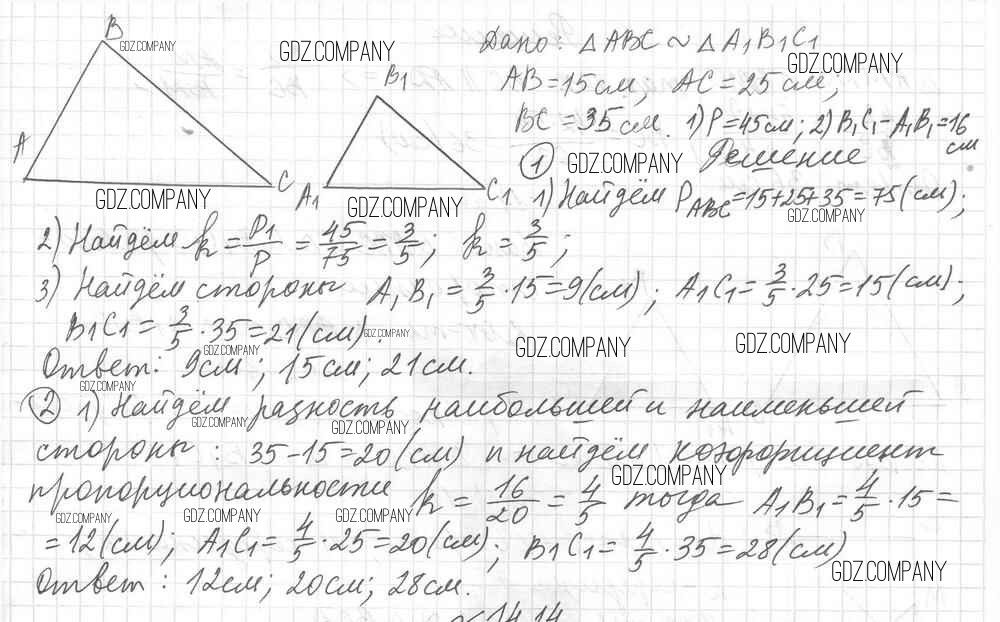 B
GDZ.COMPANY
GDZ.COMPANY
B₁
A
C
A₁
C₁
GDZ.COMPANY
GDZ.COMPANY
Дано: △ABC ~ △A₁B₁C₁
GDZ.COMPANY
AB = 15 см, AC = 25 см,
BC = 35 см. 1) P = 45 см; 2) B₁C₁ − A₁B₁ = 16 см
① GDZ.COMPANY Решение
1) Найдём P_ABC = 15+25+35 = 75 (см);
GDZ.COMPANY
2) Найдём k = P₁/P = 45/75 = 3/5; k = 3/5;
3) Найдём стороны A₁B₁ = 3/5 · 15 = 9 (см); A₁C₁ = 3/5 · 25 = 15 (см);
B₁C₁ = 3/5 · 35 = 21 (см). GDZ.COMPANY
GDZ.COMPANY GDZ.COMPANY GDZ.COMPANY
Ответ: 9 см; 15 см; 21 см.
GDZ.COMPANY
② 1) Найдём разность наибольшей и наименьшей
GDZ.COMPANY GDZ.COMPANY
стороны: 35 − 15 = 20 (см) и найдём коэффициент
GDZ.COMPANY
пропорциональности k = 16/20 = 4/5 тогда A₁B₁ = 4/5 · 15 =
GDZ.COMPANY GDZ.COMPANY GDZ.COMPANY
= 12 (см); A₁C₁ = 4/5 · 25 = 20 (см); B₁C₁ = 4/5 · 35 = 28 (см)
GDZ.COMPANY
Ответ: 12 см; 20 см; 28 см.